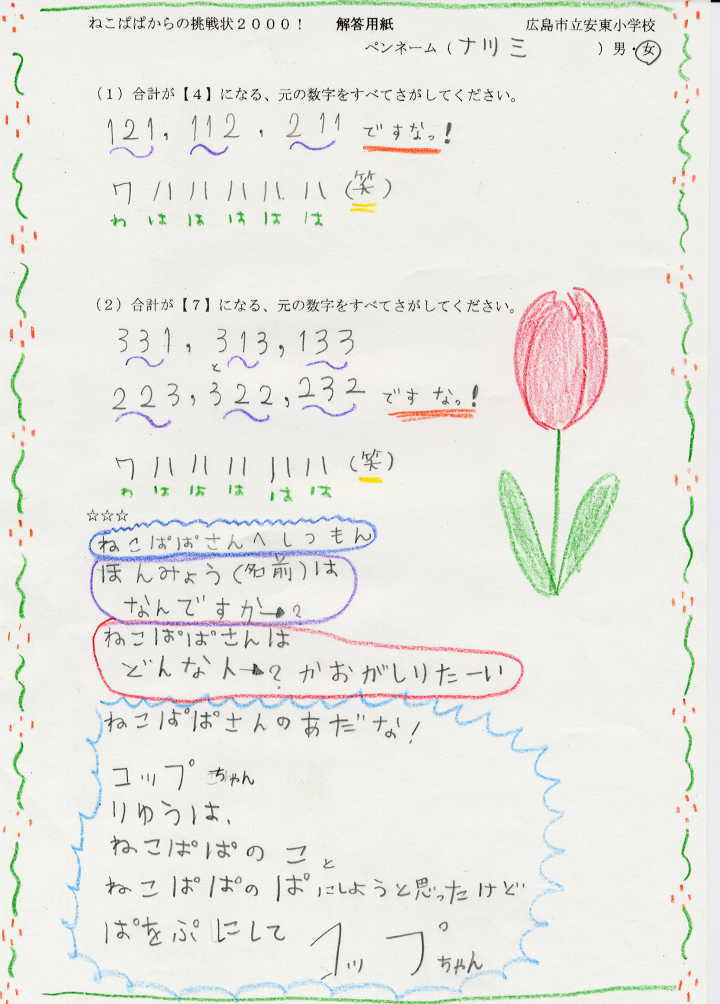 ねこぱぱからの挑戦状2000! 解答用紙 広島市立安東小学校
ペンネーム(ナ川三)男・女
(1)合計が【4】になる、元の数字をすべてさがしてください。
121, 112, 211 ですなっ!
ワハハハハハ(笑)
わははははは
(2)合計が【7】になる、元の数字をすべてさがしてください。
331, 313, 133
と
223, 322, 232 ですなっ!
ワハハハハハ(笑)
わははははは
☆☆☆
ねこぱぱさんへしつもん
ほんみょう(名前)は
なんですか?
ねこぱぱさんは
どんな人?かおがしりたーい
ねこぱぱさんのあだな!
コップちゃん
りゆうは、
ねこぱぱのこと
ねこぱぱのぱにしようと思ったけど
ぱをぷにして コップちゃん